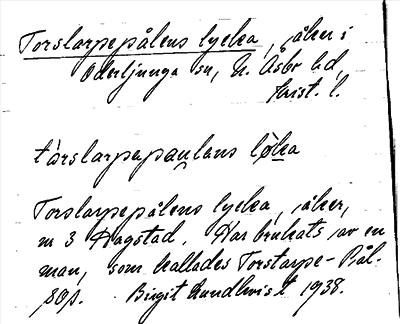 Torslarpepålens lycka, åker i
Oderljunga sn, N. Åsbo hd,
Krist. l.
tårslarpapaulans løka
Torslarpepålens lycka, åker,
nr 3 Hagstad. Har brukats av en
man, som kallades Torstarpe-Pål.
Birgit Lundkvist 1938.